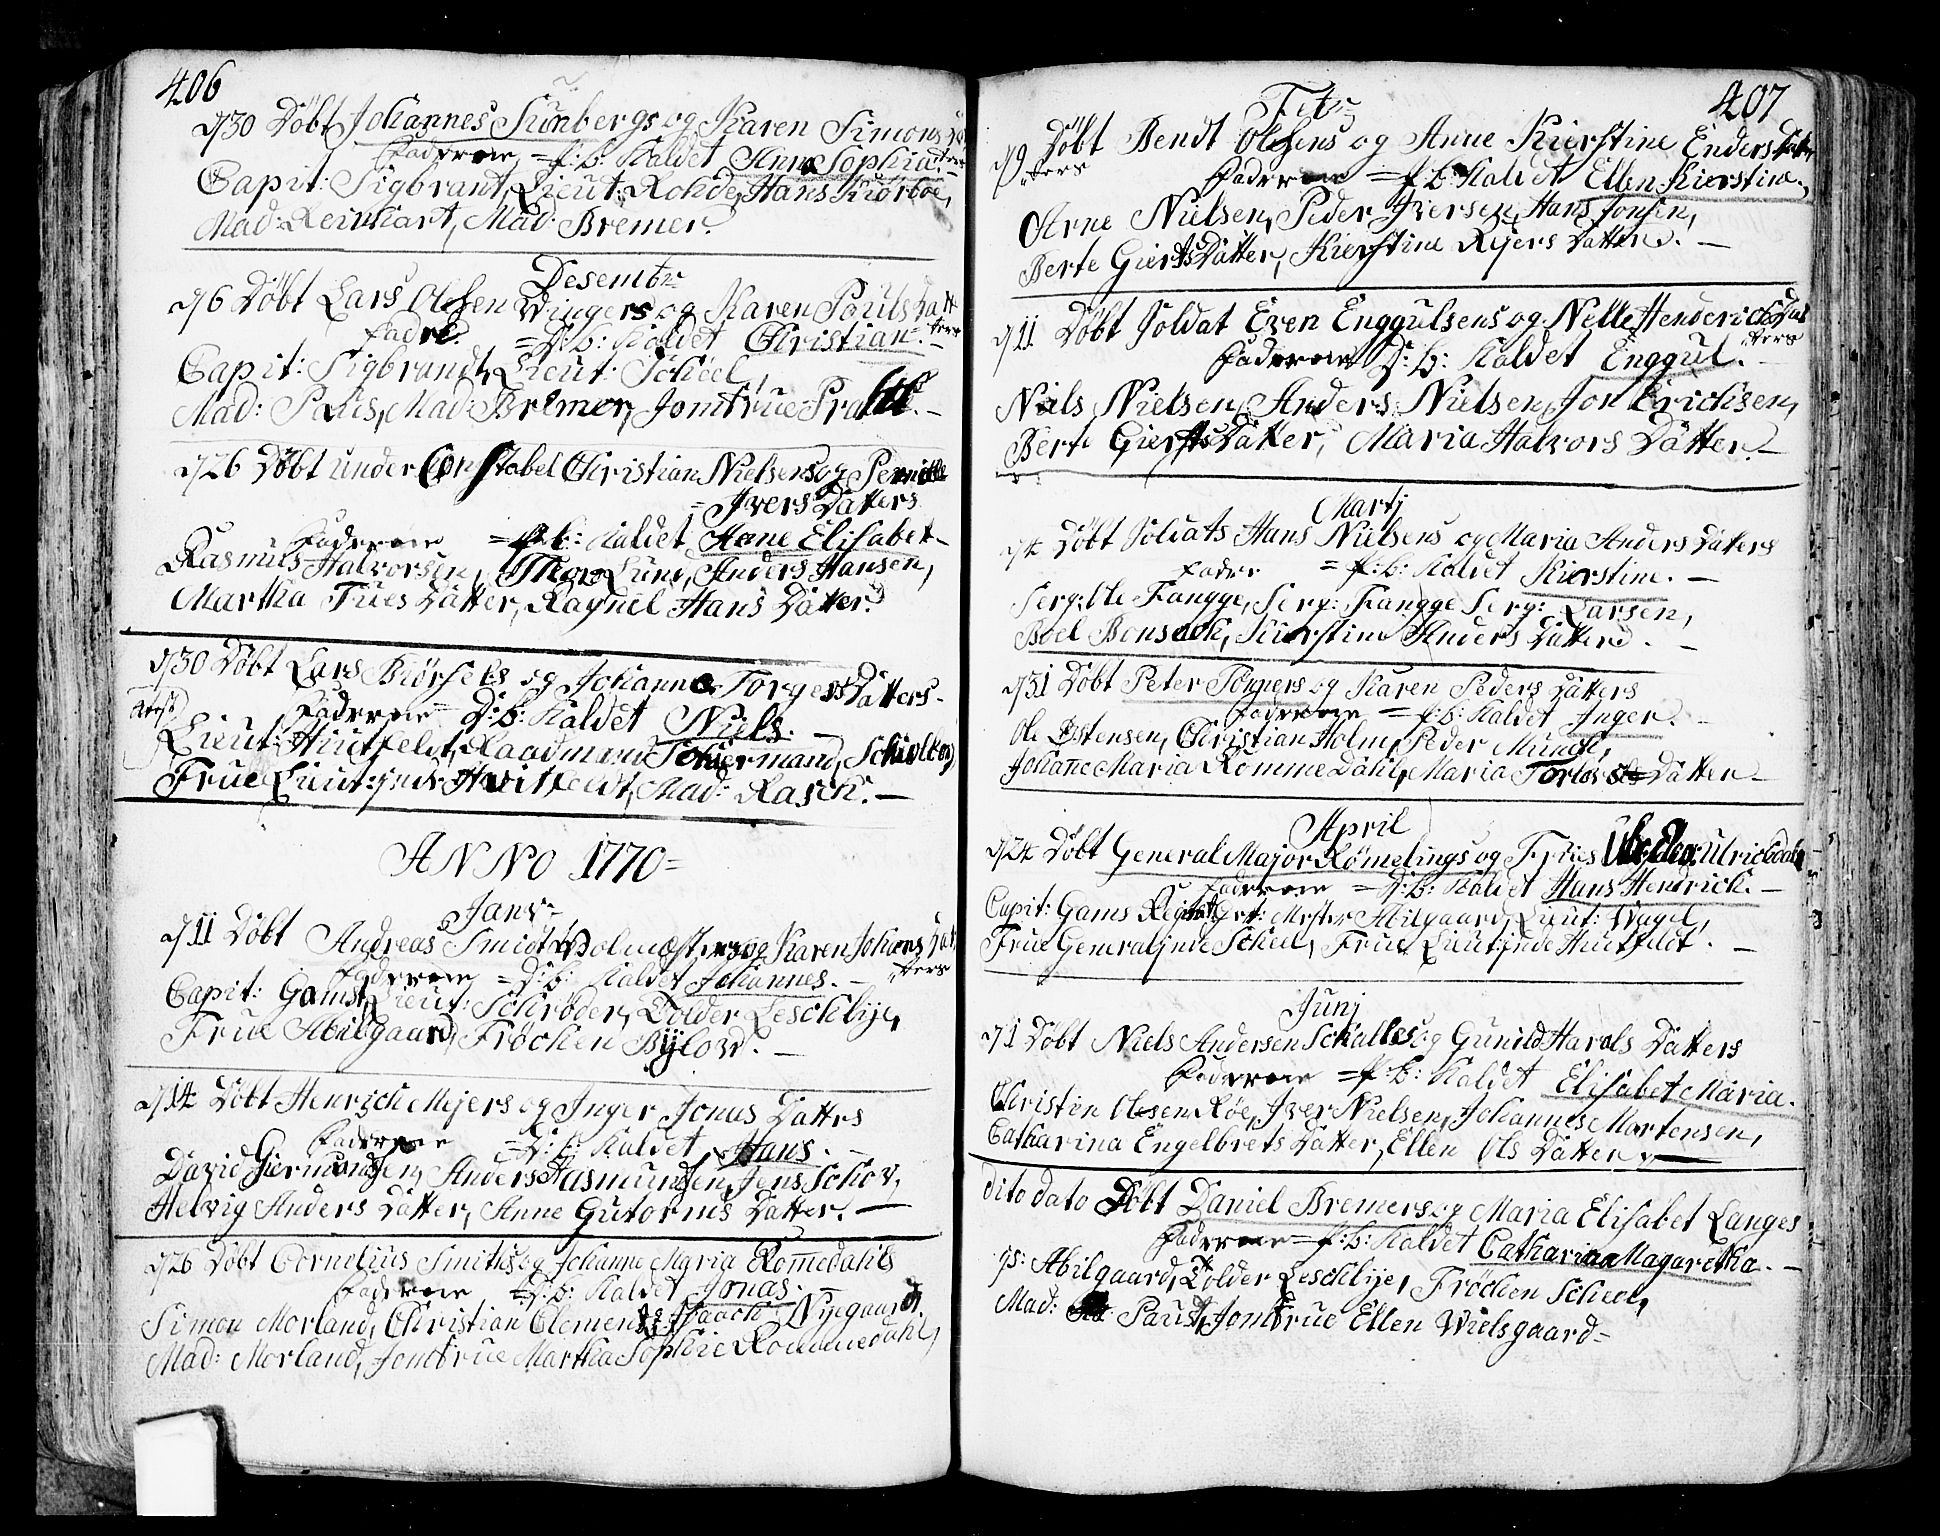 406
d 30 Döbt Johannes Sunbergs og Karen Simons Dat
Faderne = p: b: Kaldet Anna Sophia. ters
Capit: Sigbrant, Lieut: Rohde, Hans Kiørboe,
Mad: Reinhart, Mad: Bremer.
Desembr
d 6 Döbt Lars Olsen Wingers og Karen Pouls Datt
Fadre = D: b: Kaldet Christian. ters
Capit: Sigbrandt, Lieut: Scheel,
Mad: Paus, Mad: Bremer, Jomfrue
d 26 Döbt under Constabel Christian Nielsens og Pernille
= Ivers Dätters
Faderne = p: b: Kaldet Anne Elisabet
Rasmus Halvorsen, Thor Lund, Anders Hansen,
Martha Tues Dätter, Ragnel Hans Dätter.
d 30 Döbt Lars Biørsets og Johanne Torgers Dätters
Faderne = D: b: Kaldet Niels.
Lieut: Huitfeldt, Raadmand Schiermand,
Frue Lieut:inde Huitfeldt, Mad: Rasch.
ANNO 1770=
Janv
d 11 Döbt Andreas Smidt Holmesters og Karen Johans Dat
Faderne = D: b: Kaldet Johannes. ters
Capit: Gamst, Lieut: Schrøder, Tolder Leschbye,
Frue Abilgaard, Frøchen Bylow.
d 14 Döbt Henrich Mejers og Inger Jonas Dattrs
Faderne = D: b: Kaldet Hans.
David Giermundsen, Anders Asmundsen, Jens Schov,
Helvig Anders Dätter, Anne Gutorms Dätter.
d 26 Döbt Cornelius Smiths og Johanne Maria Romedahls
Faderne = D: b: Kaldet Jonas.
Simon Morland, Christian Clemens, Isaach Nyegaard,
Mad: Morland, Jomfrue Martha Sophie Rommedahl,
407
Febr
d 9 Döbt Bendt Olsens og Anne Kierstine Enders Dat
ters Faderne = p: b: Kaldet Ellen Kierstine.
Arne Nielsen, Peder Iversen, Hans Jonsen,
Berte Gierts Dätter, Kierstine Reyers Dätter.
d 11 Döbt Soldat Even Enggulsens og Nelle Henderichs Dat
Faderne D: b: Kaldet Enggul. ters
Nils Nielsen, Anders Nielsen, Jon Erichsen,
Berte Gierts Dätter, Maria Halvors Dätter.
Martj
d 4 Döbt Soldats Hans Nielsens og Maria Anders Dätters
Fadre = p: b: Kaldet Kierstine.
Serg: Ole Fangge, Serg: Fangge Serg: Larsen,
Boel Bonsach, Kierstine Anders Dätter.
d 31 Döbt Peter Töppers og Karen Peders Dätters
Faderne = p: b: Kaldet Inger.
Ole Østensen, Christian Holm, Peder Munch,
Johanne Maria Romme Dahl, Maria Dätter
April
d 24 Döbt General Major Rømelings og Frues Ulrichsdal
Faderne = D: b: Kaldet Hans Hendrich.
Capit: Gams Abilgaard, Lieut: Vagel,
Frue Generalinde Scheel, Frue Lieut:inde Huitfeldt.
Junj
d 1 Döbt Niels Andersen Schalles og Gunild Harals Dätters
Faderne = p: b: Kaldet Elisabet Maria.
Christin Olesen Røe, Iver Nielsen, Johannes Mortensen,
Catharina Engelbrets Dätter, Ellen Ols Dätter
dito dato Döbt Daniel Bremers og Maria Elisabet Langes
Faderne = p: b: Kaldet Catharina Magaretha.
Abilgaard, Tolder Leschbye, Frøchen Scheel,
Mad: Paus, Jomfrue Ellen Wielsgaard=